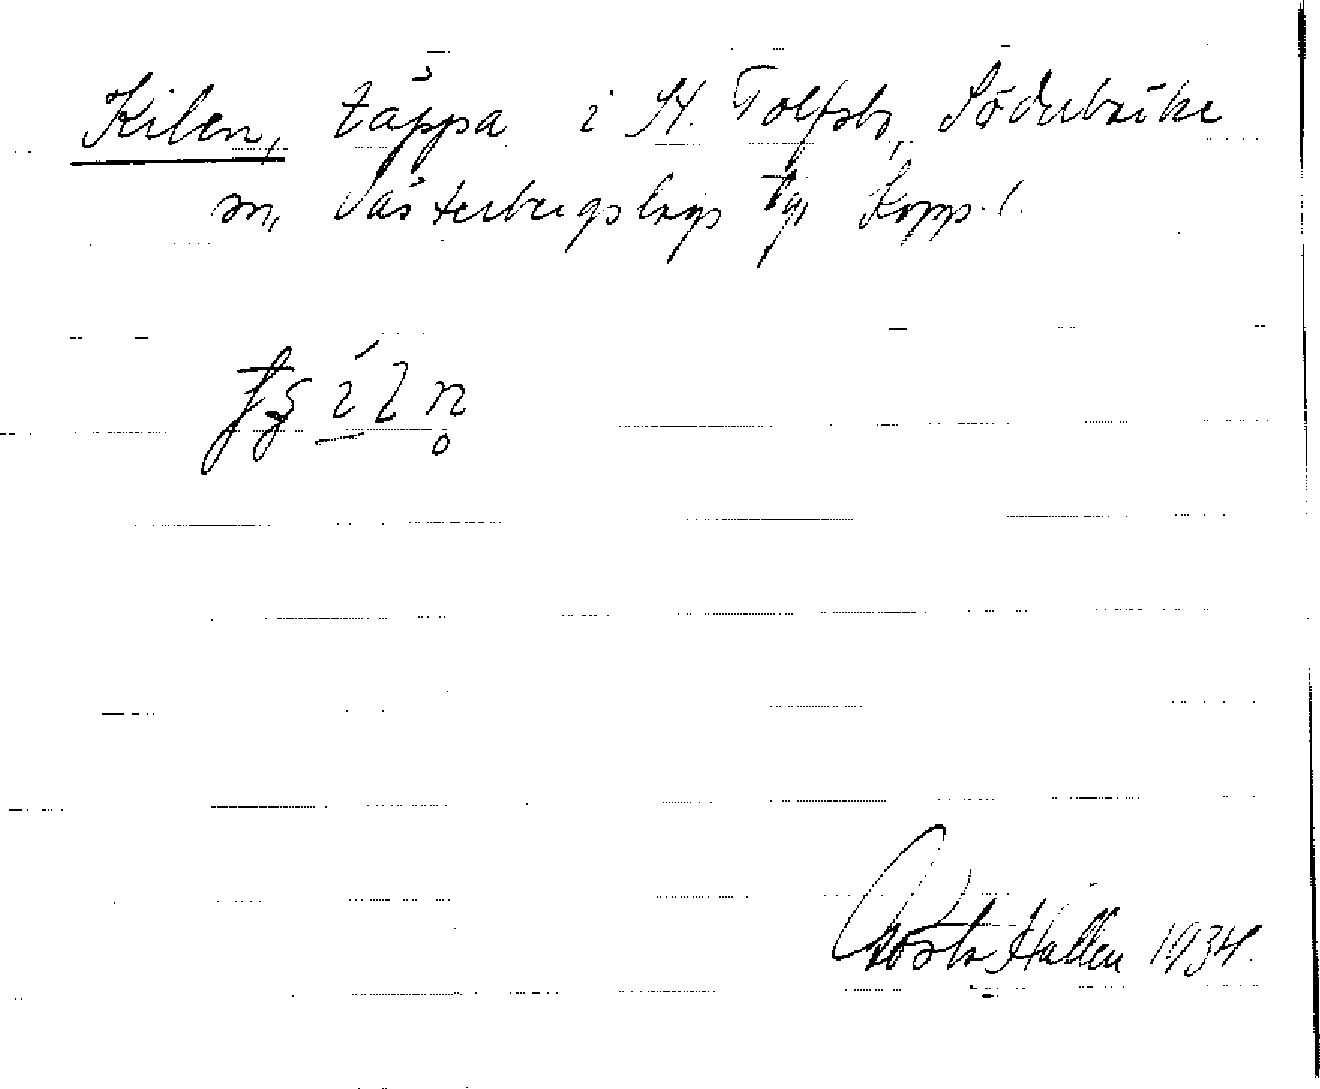 Kilen, täppa i St. Tolfsbo, Söderbärke
sn, Västerbergslags tgs Kopp. l.
Gösta Hallen 1934.